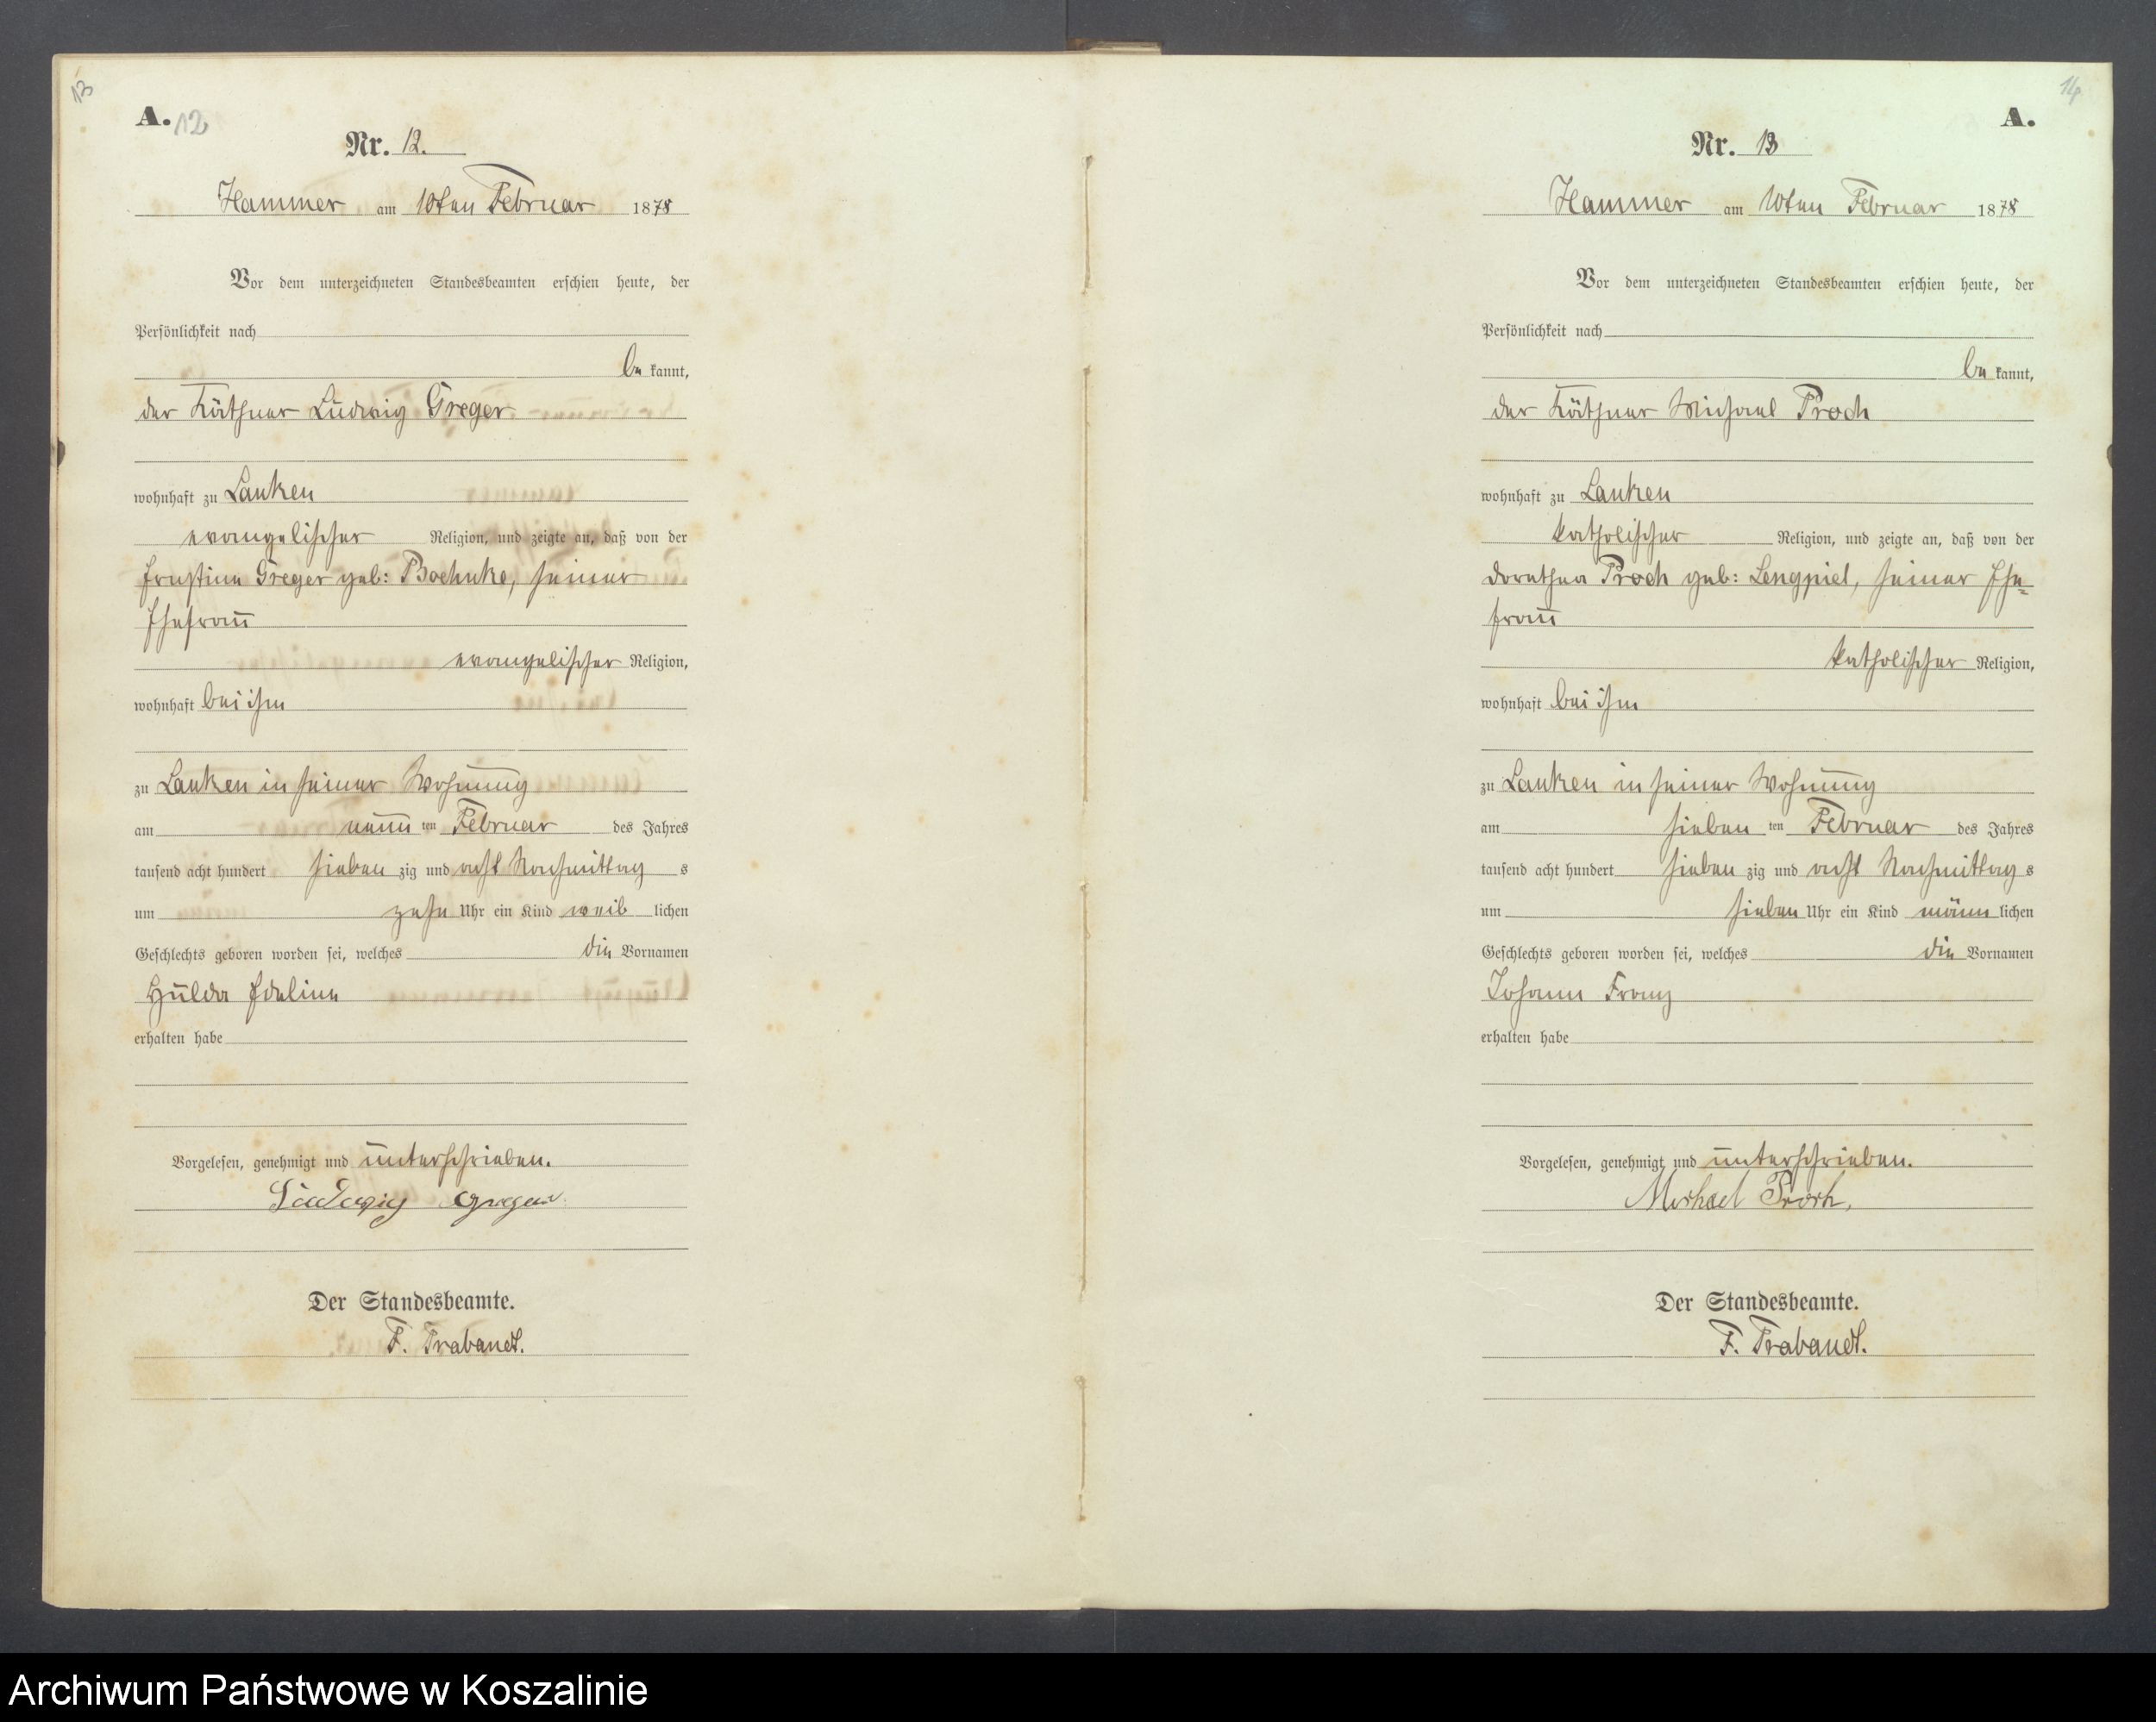 13
A. 12
Nr. 12.
Hammer am 10ten Februar 1878
Vor dem unterzeichneten Standesbeamten erschien heute, der
Persönlichkeit nach
be kannt,
der Käthner Ludwig Greger
wohnhaft zu Lanken
evangelischer Religion, und zeigte an, daß von der
Ernstine Greger geb: Boehnke, seiner
Ehefrau
evangelischer Religion,
wohnhaft bei ihm
zu Lanken in seiner Wohnung
am neun ten Februar des Jahres
tausend acht hundert sieben zig und acht Nachmittag s
um zehn Uhr ein Kind weib lichen
Geschlechts geboren worden sei, welches die Vornamen
Hulda Idaline
erhalten habe
Vorgelesen, genehmigt und unterschrieben.
Ludwig Greger
Der Standesbeamte.
F. Trabandt.
14
A.
Nr. 13
Hammer am 10ten Februar 1878
Vor dem unterzeichneten Standesbeamten erschien heute, der
Persönlichkeit nach
be kannt,
der Käthner Michael Proch
wohnhaft zu Lanken
katholischer Religion, und zeigte an, daß von der
Dorothea Proch geb: Lengpiel, seiner Ehe=
frau
katholischer Religion,
wohnhaft bei ihm
zu Lanken in seiner Wohnung
am sieben ten Februar des Jahres
tausend acht hundert sieben zig und acht Nachmittag s
um sieben Uhr ein Kind männ lichen
Geschlechts geboren worden sei, welches die Vornamen
Johann Franz
erhalten habe
Vorgelesen, genehmigt und unterschrieben.
Michael Proch,
Der Standesbeamte.
F. Trabandt.
Archiwum Państwowe w Koszalinie